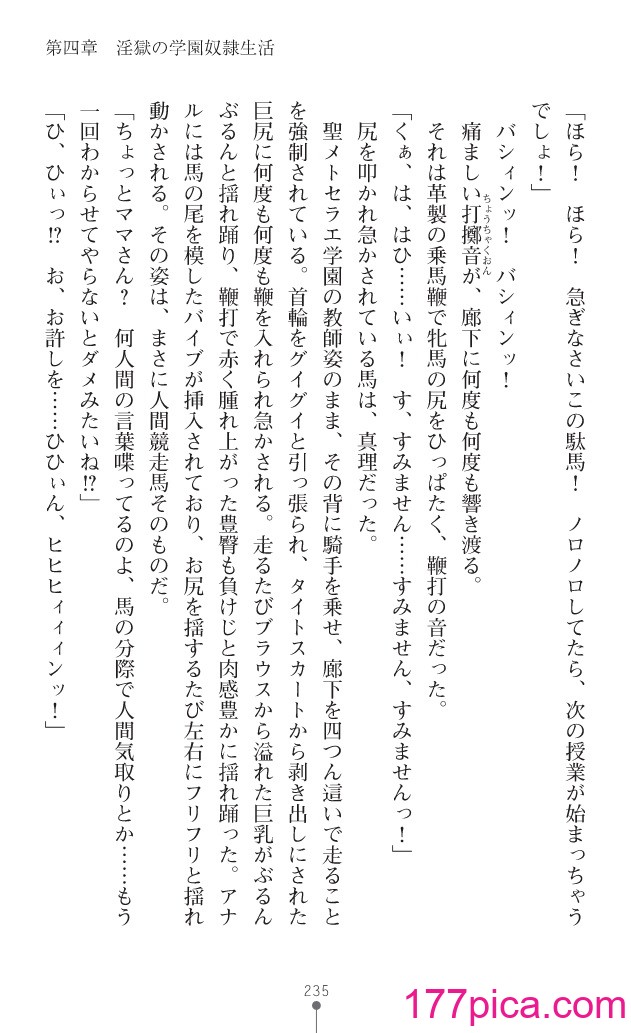 第四章　淫獄の学園奴隷生活
「ほら！　ほら！　急ぎなさいこの駄馬！　ノロノロしてたら、次の授業が始まっちゃう
でしょ！」
　バシィンッ！　バシィンッ！
　痛ましい打擲音ちょうちゃくおんが、廊下に何度も何度も響き渡る。
　それは革製の乗馬鞭で牝馬の尻をひっぱたく、鞭打の音だった。
「くぁ、は、はひ……いぃ！　す、すみません……すみません、すみませんっ！」
　尻を叩かれ急かされている馬は、真理だった。
　聖メトセラエ学園の教師姿のまま、その背に騎手を乗せ、廊下を四つん這いで走ること
を強制されている。首輪をグイグイと引っ張られ、タイトスカートから剥き出しにされた
巨尻に何度も何度も鞭を入れられ急かされる。走るたびブラウスから溢れた巨乳がぶるん
ぶるんと揺れ踊り、鞭打で赤く腫れ上がった豊臀も負けじと肉感豊かに揺れ踊った。アナ
ルには馬の尾を模したバイブが挿入されており、お尻を揺するたび左右にフリフリと揺れ
動かされる。その姿は、まさに人間競走馬そのものだ。
「ちょっとママさん？　何人間の言葉喋ってるのよ、馬の分際で人間気取りとか……もう
一回わからせてやらないとダメみたいね!?」
「ひ、ひぃっ!?　お、お許しを……ひひぃん、ヒヒヒィィィンッ！」
235
177pica.com